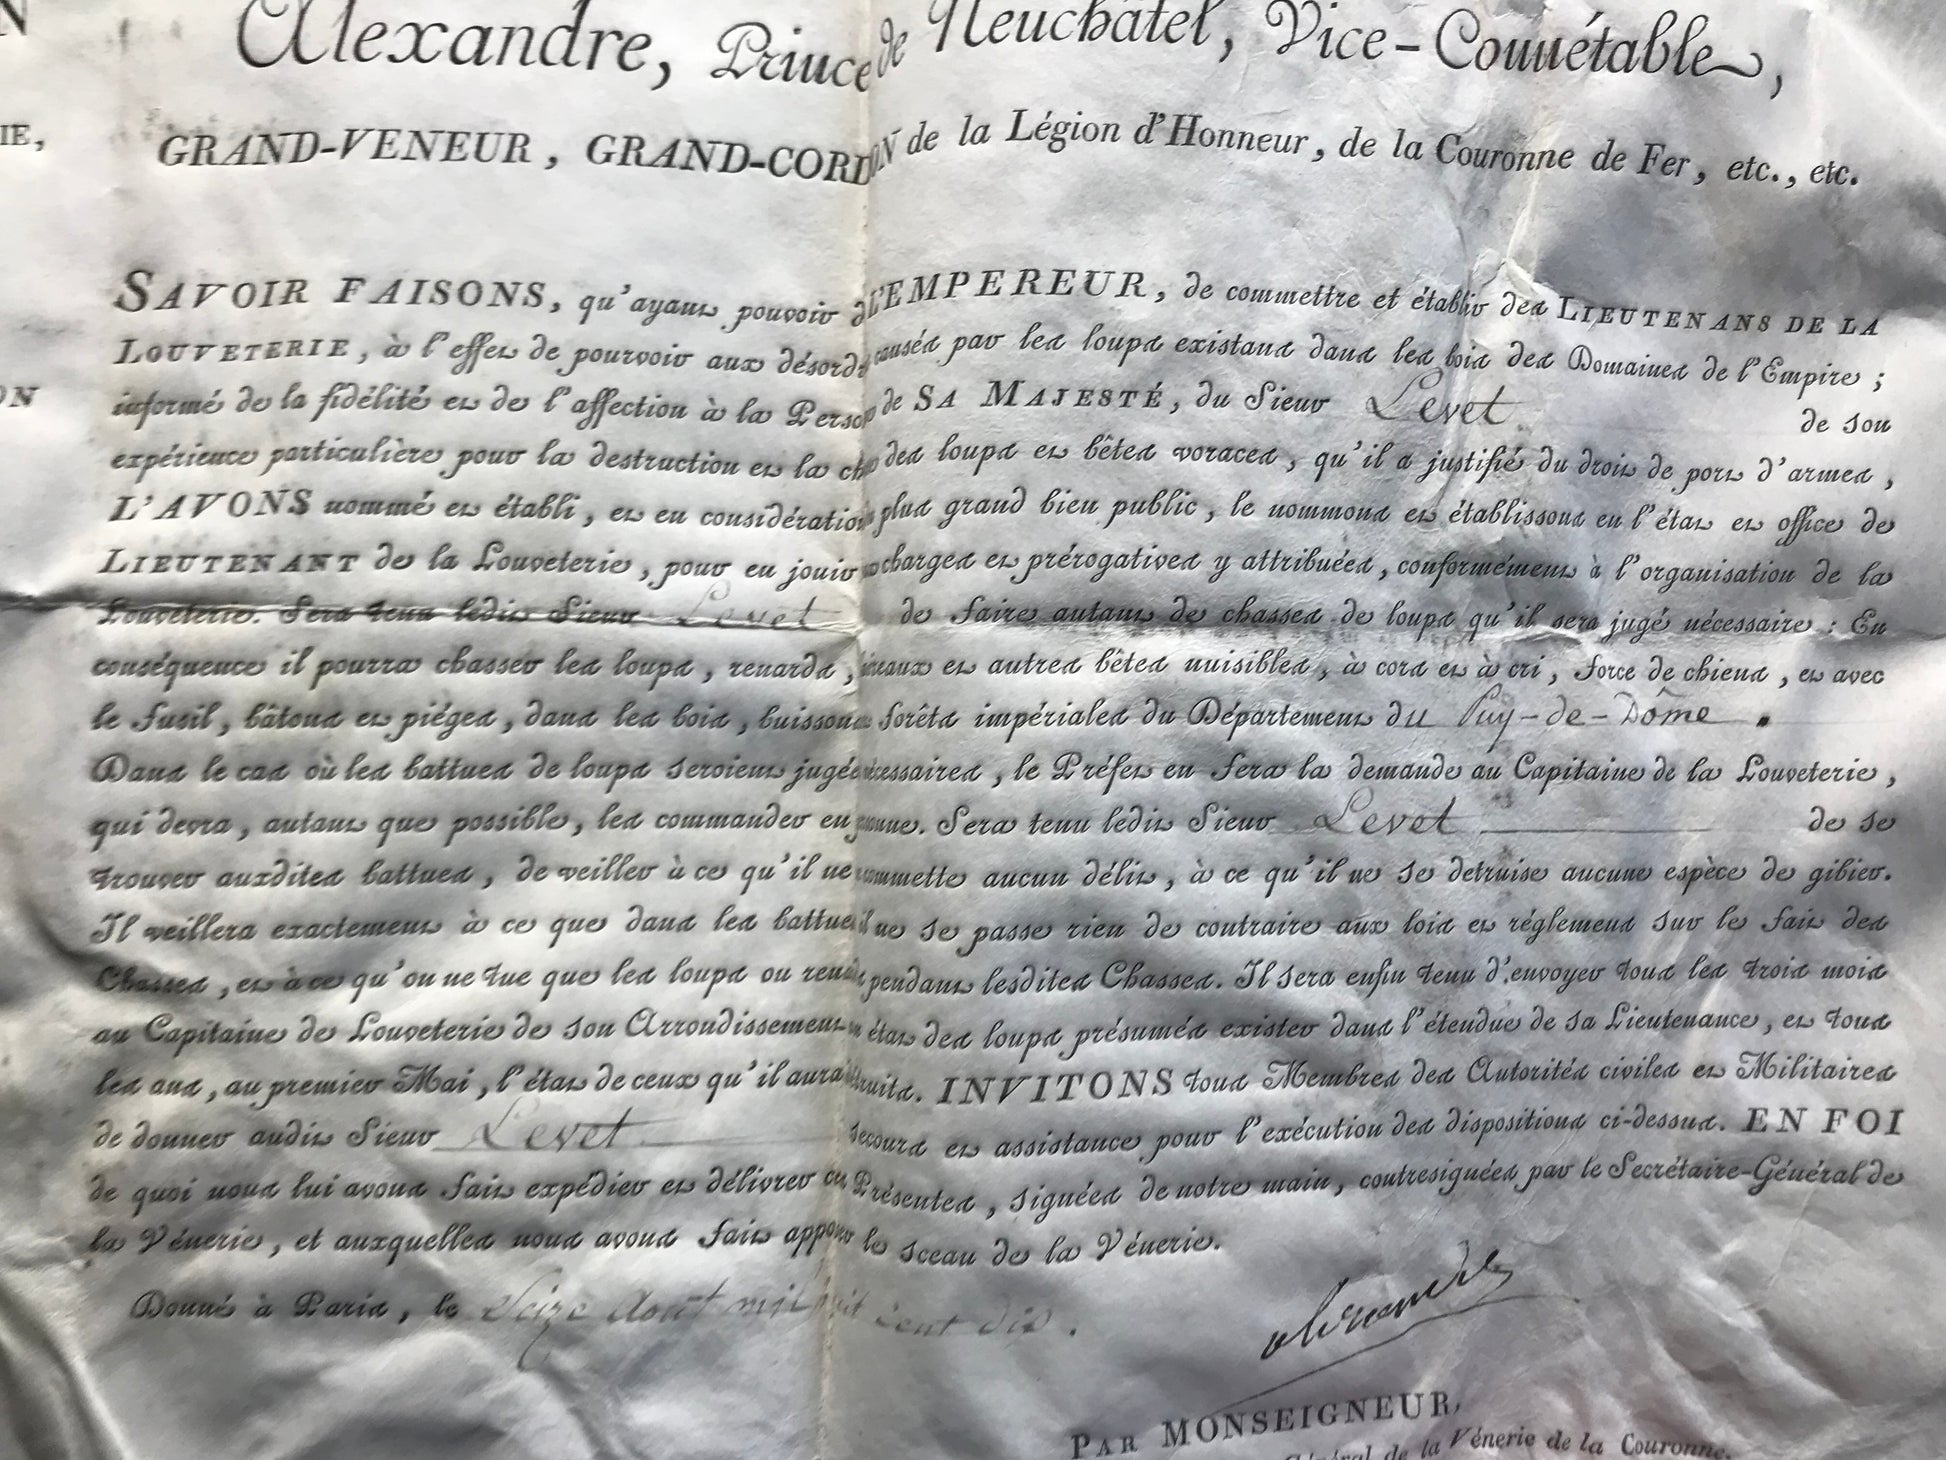 N
Alexandre, Prince de Neuchâtel, Vice-Connétable,
IE,
GRAND-VENEUR, GRAND-CORDON de la Légion d'Honneur, de la Couronne de Fer, etc., etc.
SAVOIR FAISONS, qu'ayant pouvoir de L'EMPEREUR, de commettre et établir des LIEUTENANS DE LA
LOUVETERIE, à l'effet de pourvoir aux désordres causés par les loups existans dans les bois des Domaines de l'Empire ;
ON
informé de la fidélité et de l'affection à la Personne de SA MAJESTÉ, du Sieur Levet de son
expérience particulière pour la destruction et la chasse des loups et bêtes voraces, qu'il a justifié du droit de port d'armes,
L'AVONS nommé et établi, et en considération du plus grand bien public, le nommons et établissons en l'état et office de
LIEUTENANT de la Louveterie, pour en jouir aux charges et prérogatives y attribuées, conformément à l'organisation de la
Louveterie. Sera tenu ledit Sieur Levet de faire autant de chasses de loups qu'il sera jugé nécessaire : En
conséquence il pourra chasser les loups, renards, blaireaux et autres bêtes nuisibles, à cors et à cri, force de chiens, et avec
le fusil, bâtons et pièges, dans les bois, buissons et forêts impériales du Département du Puy-de-Dôme.
Dans le cas où les battues de loups seroient jugées nécessaires, le Préfet en fera la demande au Capitaine de la Louveterie,
qui devra, autant que possible, les commander en personne. Sera tenu ledit Sieur Levet de se
trouver auxdites battues, de veiller à ce qu'il ne se commette aucun délit, à ce qu'il ne se detruise aucune espèce de gibier.
Il veillera exactement à ce que dans les battues il ne se passe rien de contraire aux lois et réglemens sur le fait des
Chasses, et à ce qu'on ne tue que les loups ou renards pendant lesdites Chasses. Il sera enfin tenu d'envoyer tous les trois mois
au Capitaine de Louveterie de son Arrondissement un état des loups présumés exister dans l'étendue de sa Lieutenance, et tous
les ans, au premier Mai, l'état de ceux qu'il aura détruits. INVITONS tous Membres des Autorités civiles et Militaires
de donner audit Sieur Levet secours et assistance pour l'exécution des dispositions ci-dessus. EN FOI
de quoi nous lui avons fait expédier et délivrer ces Présentes, signées de notre main, contresignées par le Secrétaire-Général de
la Vénerie, et auxquelles nous avons fait apposer le sceau de la Vénerie.
Donné à Paris, le Seize Aout mil huit cent dix.
Alexandre
PAR MONSEIGNEUR,
Général de la Vénerie de la Couronne.